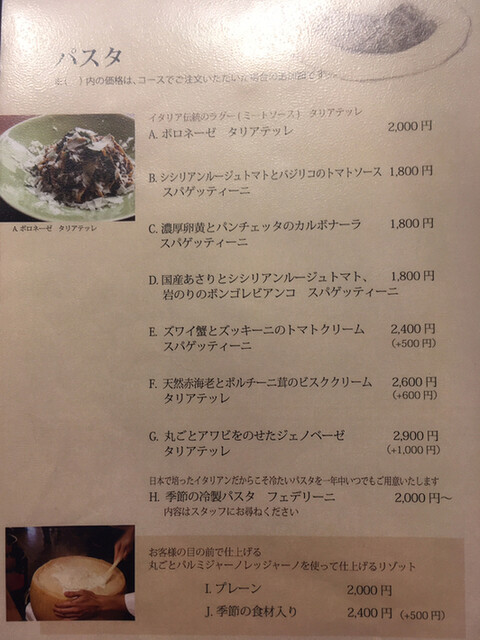 パスタ
内の価格は、コースでご注文いただいた場合の追加
イタリア伝統のラグー(ミートソース) タリアテッレ
A. ボロネーゼ タリアテッレ 2,000円
A.ボロネーゼ タリアテッレ
B. シシリアンルージュトマトとバジリコのトマトソース 1,800円
スパゲッティーニ
C. 濃厚卵黄とパンチェッタのカルボナーラ 1,800円
スパゲッティーニ
D. 国産あさりとシシリアンルージュトマト、 1,800円
岩のりのボンゴレビアンコ スパゲッティーニ
E. ズワイ蟹とズッキーニのトマトクリーム 2,400円
スパゲッティーニ (+500円)
F. 天然赤海老とポルチーニ茸のビスククリーム 2,600円
タリアテッレ (+600円)
G. 丸ごとアワビをのせたジェノベーゼ 2,900円
タリアテッレ (+1,000円)
日本で培ったイタリアンだからこそ冷たいパスタを一年中いつでもご用意いたします
H. 季節の冷製パスタ フェデリーニ 2,000円〜
内容はスタッフにお尋ねください
お客様の目の前で仕上げる
丸ごとパルミジャーノレッジャーノを使って仕上げるリゾット
I. プレーン 2,000円
J. 季節の食材入り 2,400円 (+500円)